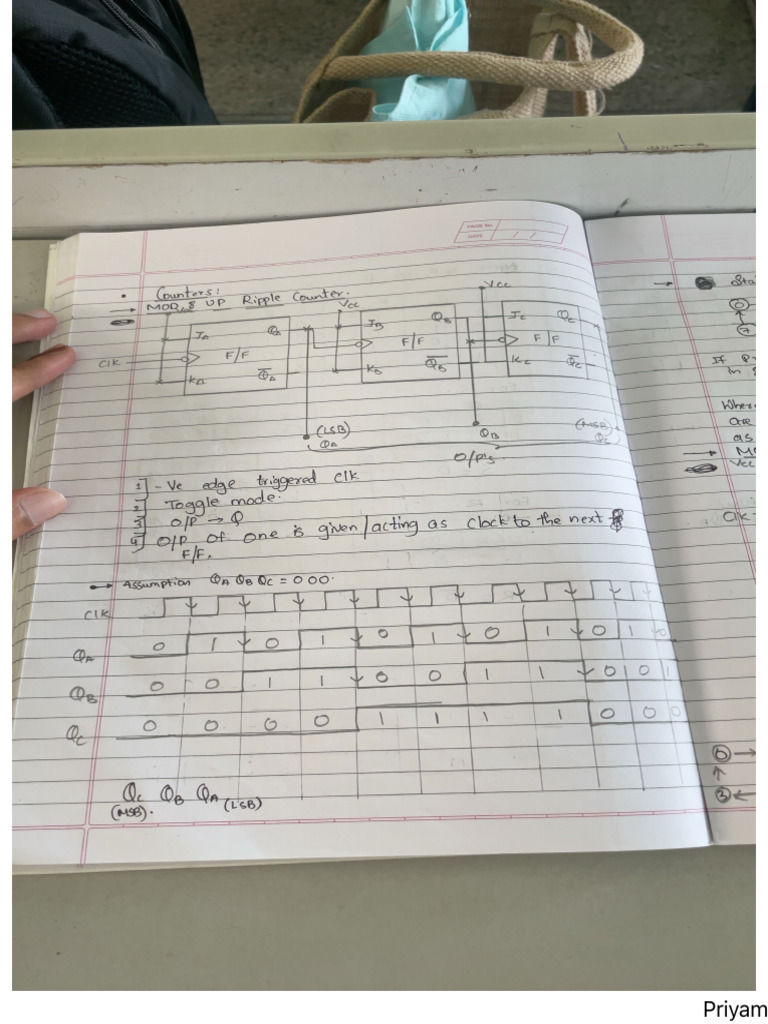 PAGE NO.
DATE / /
• Counters:
→ MOD, 8 UP Ripple Counter.
Vcc
Vcc
JA QA
F/F
KA Q̅A
Clk
JB QB
F/F
KB Q̅B
Jc Qc
F/F
Kc Q̅c
(LSB)
QA
QB
(MSB)
Qc
O/P's
1] -Ve edge triggered clk
2] Toggle mode.
3] O/P → Q
4] O/P of one is given/acting as clock to the next
F/F.
→ Assumption QA QB QC = 000.
Clk
QA 0 1 0 1 0 1 0 1 0 1 0
QB 0 0 1 1 0 0 1 1 0 0 1
Qc 0 0 0 0 1 1 1 1 0 0 0
Qc QB QA (LSB)
(MSB).
→ Sta
0
7
If
in
Wher
are
as
→ M
Vcc
Clk
0 →
↑
3 ←
Priyam